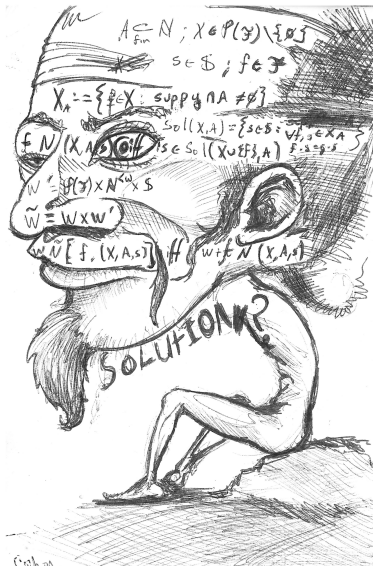 A ⊆fin N ; X ∈ P(F)\{∅}
s ∈ $ ; f ∈ F
X_A := {f ∈ X : supp f ∩ A ≠ ∅}
Sol(X,A) = {s ∈ $ : ∀f, s ∈ X_A
f N (X,A,s) iff s ∈ Sol(X∪{f},A)
W' = P(F) × N^<ω × $
W̃ = W × W'
w Ñ [f,(X,A,s)] iff w+f N (X,A,s)
SOLUTION?